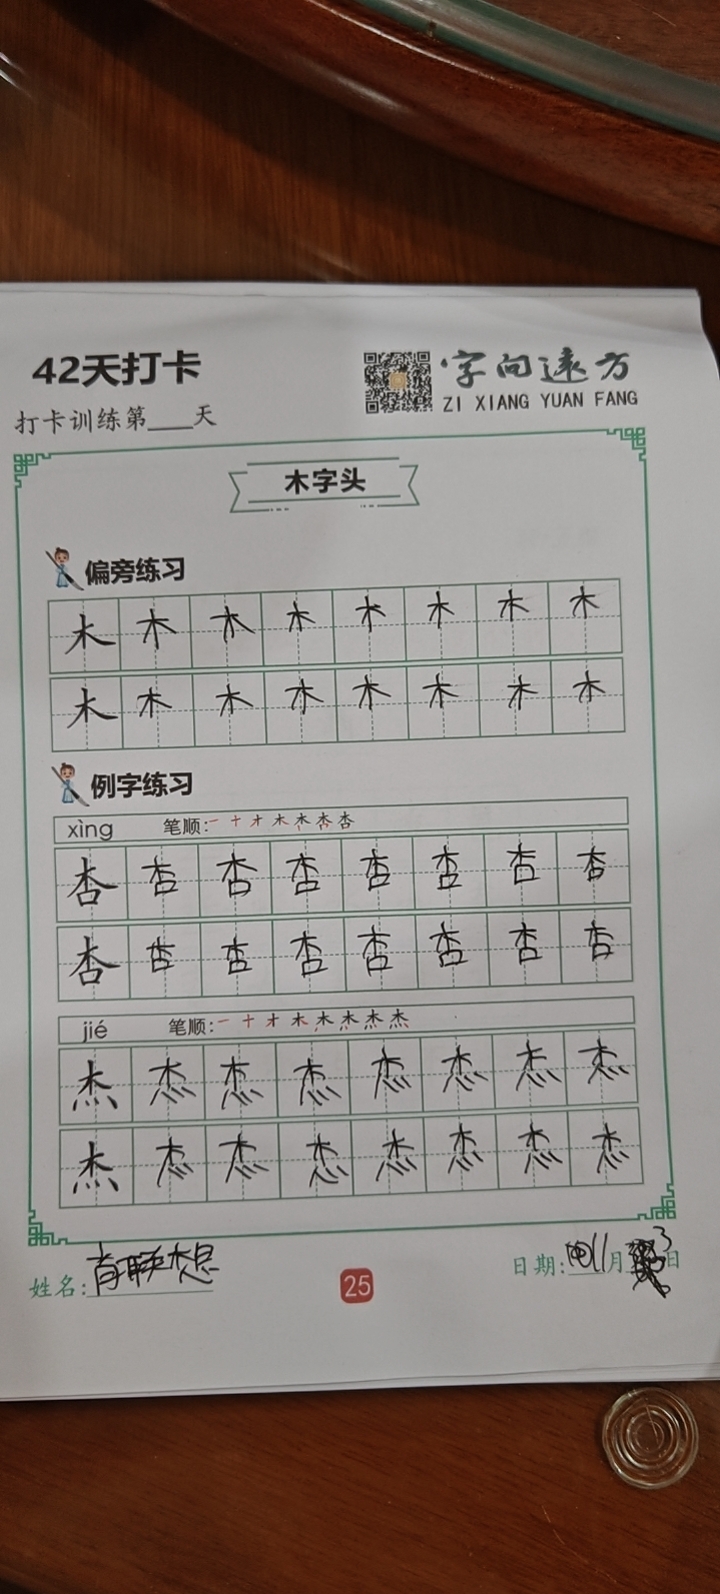 42天打卡
字向远方
ZI XIANG YUAN FANG
打卡训练第____天
木字头
偏旁练习
木 木 木 木 木 木 木 木
木 木 木 木 木 木 木 木
例字练习
xìng 笔顺:
杏 杏 杏 杏 杏 杏 杏 杏
杏 杏 杏 杏 杏 杏 杏 杏
jié 笔顺:
杰 杰 杰 杰 杰 杰 杰 杰
杰 杰 杰 杰 杰 杰 杰 杰
姓名: 肖联想
25
日期: 11月3日